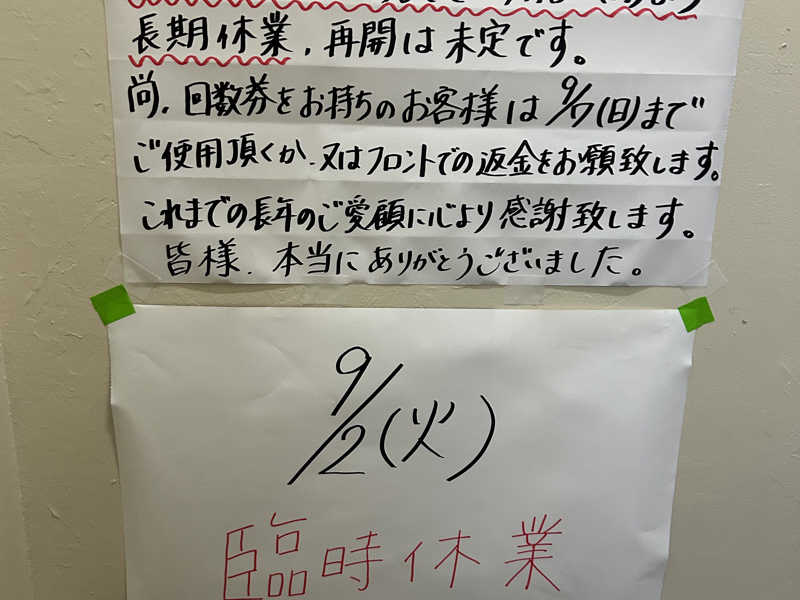 長期休業、再開は未定です。
尚、回数券をお持ちのお客様は9/7(日)まで
ご使用頂くか、又はフロントでの返金をお願致します。
これまでの長年のご愛顧に心より感謝致します。
皆様、本当にありがとうございました。
9/2(火)
臨時休業